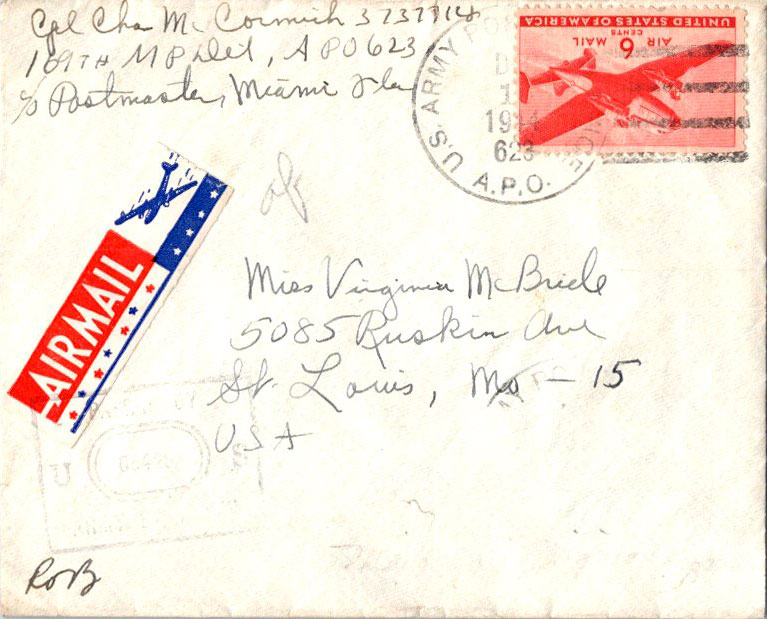 Cpl Chas Mc Cormick 37377714
109TH M P Det, A P O 623
c/o Postmaster, Miami Fla
UNITED STATES OF AMERICA
6 CENTS
AIR MAIL
U.S. ARMY
1
194
623
A.P.O.
AIR MAIL
Miss Virginia McBride
5085 Ruskin Ave
St. Louis, Mo - 15
USA
U
RoB